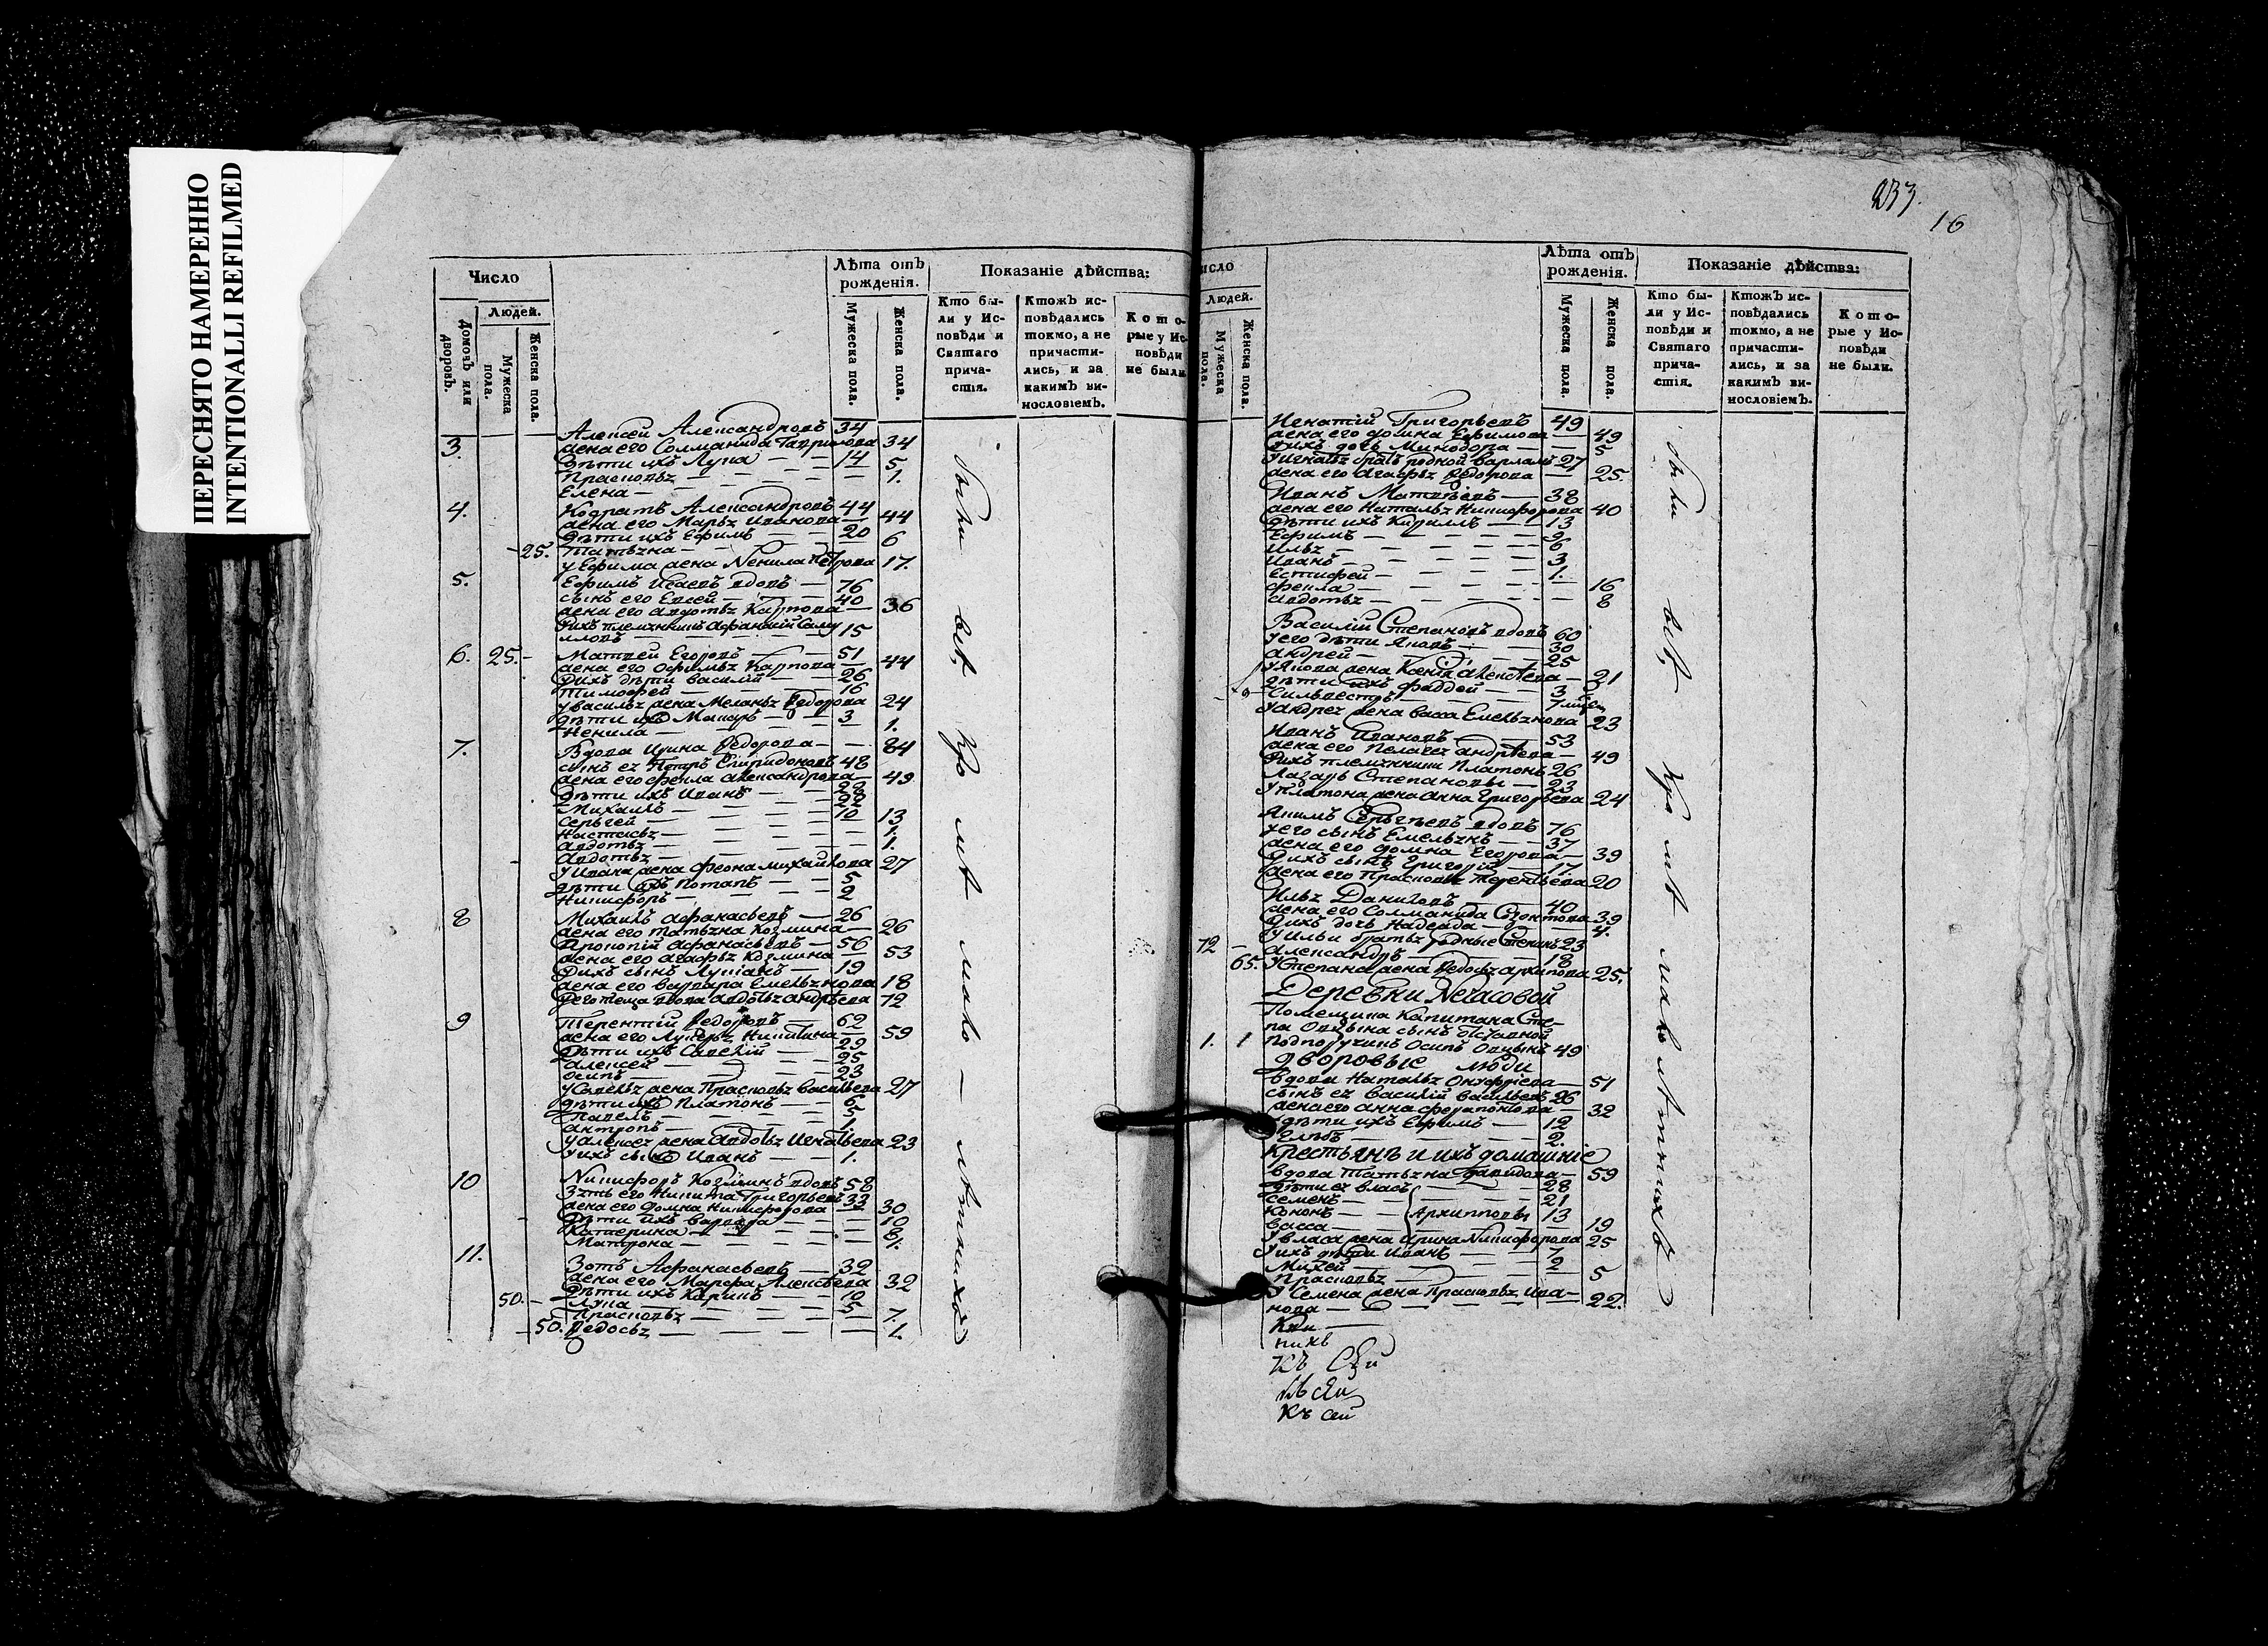 ПЕРЕСНЯТО НАМЕРЕННО
INTENTIONALLI REFILMED
233.
16
Число
Людей.
Домовъ или дворовъ.
Мужеска пола.
Женска пола.
Лѣта отъ рожденія.
Мужеска пола.
Женска пола.
Показаніе дѣйства:
Кто бы-
ли у Ис-
повѣди и
Святаго
прича-
стія.
Ктожъ ис-
повѣдались
токмо, а не
причасти-
лись, и за
какимъ ви-
нословіемъ.
Кото-
рые у Ис-
повѣди
не были.
3. Алексей Александровъ 34
жена его Соломанида Гаврилова 34
дѣти ихъ Лупа — 14
Прасковья — 5
Елена — 1.
4. Кодратъ Александровъ 44
жена его Марья Иванова 44
дѣти ихъ Ефимъ — 20
25. Татьяна — 6
у Ефима жена Ненила Петрова 17.
5. Ефимъ Исаевъ вдовъ — 76
сынъ его Елсей — 40
жена его Авдотья Карпова — 36
у ихъ племянникъ Афанасий Саму
иловъ — 15
6. 25. Матвей Егоровъ — 51
жена его Офимья Карпова — 44
у ихъ дѣти Василий — 26
Тимофей — 16
у Василья жена Меланья Федорова 24
дѣти ихъ Макаръ — 3
Ненила — 1.
7. Вдова Ирина Федорова — 84
сынъ ея Петръ Спиридоновъ 48
жена его Фекла Александрова — 49
дѣти ихъ Иванъ — 28
Михаилъ — 22
Сергей — 10
Настасья — 13
Авдотья — 1.
Авдотья — 1.
у Ивана жена Феона Михайлова 27
дѣти ихъ Потапъ — 5
Никифоръ — 2
8 Михаилъ Афанасьевъ — 26
жена его Татьяна Козмина — 26
Прокопій Афанасьевъ — 56
жена его Агафья Козмина — 53
у ихъ сынъ Лукіанъ — 19
жена его Варвара Емельянова 18
у его теща вдова Авдотья Андрѣева 72
9 Терентий Федоровъ — 62
жена его Лукерья Никитина — 59
дѣти ихъ Савелий — 29
Алексей — 25
Осипъ — 23
у Савелья жена Прасковья Васильева 27
дѣти ихъ Платонъ — 6
Павелъ — 5
Антропъ — 1.
у Алексея жена Авдотья Игнатьева 23
у ихъ сынъ Иванъ — 1.
10 Никифоръ Козминъ вдовъ 58
Зять его Никита Григорьевъ 33
жена его Домна Никифорова — 30
дѣти ихъ Варвара — 10
Катерина — 8
Матрона — 1.
11. Зотъ Афанасьевъ — 32
жена его Марфа Алексѣева 32
дѣти ихъ Карпъ — 10
50. Лупа — 5
Прасковья — 7.
50. Федосья — 1.
были всѣ кро мѣ мало — лѣтнихъ
исло
Людей.
Мужеска пола.
Женска пола.
Лѣта отъ рожденія.
Мужеска пола.
Женска пола.
Показаніе дѣйства:
Кто бы-
ли у Ис-
повѣди и
Святаго
прича-
стія.
Ктожъ ис-
повѣдались
токмо, а не
причасти-
лись, и за
какимъ ви-
нословіемъ.
Кото-
рые у Ис-
повѣди
не были.
Игнатій Григорьевъ 49
жена его Домна Ефимова 49
у ихъ дочь Минодора — 5
у Игнатья братъ родной Варламъ 27
жена его Агафья Федорова — 25.
Иванъ Матвѣевъ — 38
жена его Наталья Никифорова 40
дѣти ихъ Кирилъ — 13
Ефимъ — 9
Илья — 6
Иванъ — 3
Естифей — 1.
Фекла — 16
Авдотья — 8
Василій Степановъ вдовъ 60
у его дѣти Яковъ — 30
Андрей — 25
у Якова жена Ксенія Алексѣева — 21
дѣти ихъ Фаддей — 3
Сильвестръ —
у Андрея жена Васа Емельянова 23
Иванъ Ивановъ — 53
жена его Пелагея Андрѣева — 49
у ихъ племянники Платонъ 26
Лазарь Степановы — 23
у Платона жена Анна Григорьева 24
Якимъ Сергѣевъ вдовъ 76
у его сынъ Емельянъ — 37
жена его Домна Егорова — 39
у ихъ сынъ Григорій — 17
жена его Прасковья Терентьева 20
Илья Даниловъ — 40
жена его Соломанида Созонтова 39
у ихъ дочь Надежда — 4.
у Ильи братья родные Степанъ 23
72 Александръ — 18
65. у Степана жена Федосья Архипова 25.
Деревни Nечасовой
Помещика Капитана Сте-
па Опцына сынъ отставной
1. 1 Подпоручикъ Осипъ Опцынъ 49
дворовые люди
вдова Наталья Онуфріева — 51
сынъ ея Василий Васильевъ 26
жена его Анна Ферапонтова — 32
дѣти ихъ Ефимъ — 12
Глѣбъ — 2.
Крестьянѣ и ихъ домашніе
вдова Татьяна Давидова — 59
дѣти ея Власъ — 28
Семенъ — 21
Кононъ — Архиповы 13
Васса — 19
у Власа жена Арина Никифорова 25
у ихъ дѣти Иванъ — 7
Михей — 2
Прасковья — 5
у Семена жена Прасковья Ива-
нова — 22.
были всѣ кро мѣ мало лѣтнихъ
нихъ